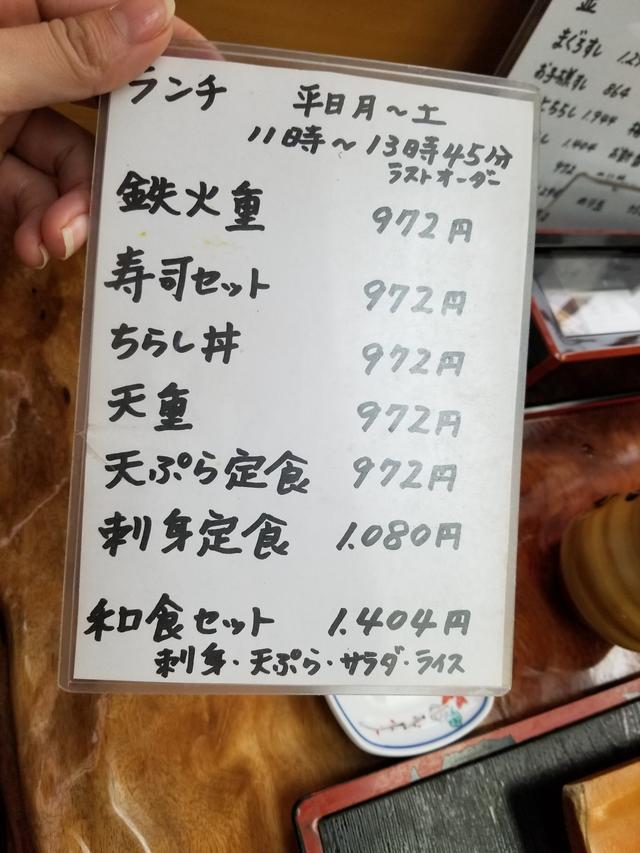 ランチ 平日月～土
11時～13時45分
ラストオーダー
鉄火重 972円
寿司セット 972円
ちらし丼 972円
天重 972円
天ぷら定食 972円
刺身定食 1.080円
和食セット 1.404円
刺身・天ぷら・サラダ・ライス
まぐろすし
お子様すし 864
ちらし 1.944
1.404
972